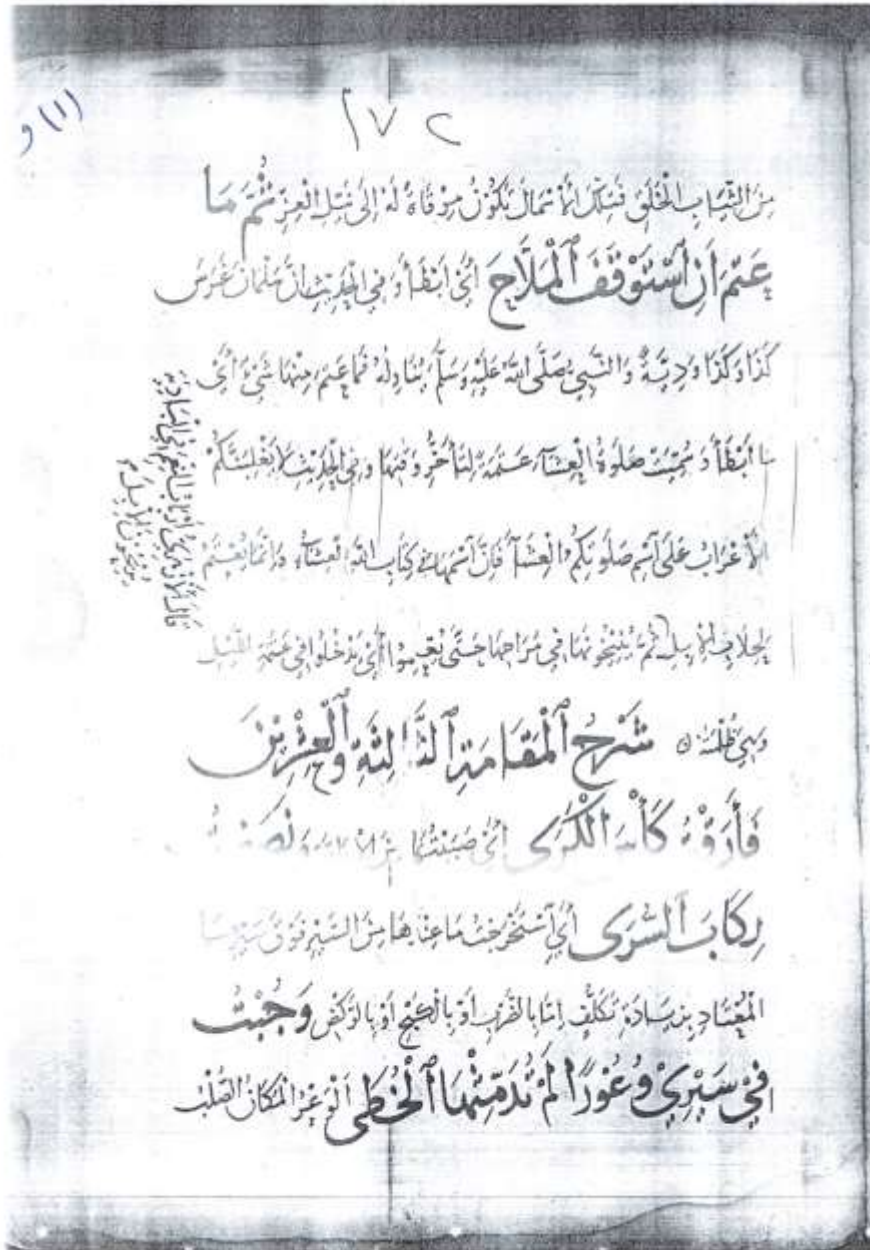 (١) و
١٧٢
مِنَ الثِّيَابِ الْخَلَقِ فَتِلْكَ الْأَسْمَالُ تَكُونُ مِرْقَاةً لَهُ إِلَى نَيْلِ الْعِزِّ ثُمَّ مَا
عَتَّمَ أَنِ ٱسْتَوْقَفَ ٱلْمَلَّاحَ أَيْ أَبْطَأَ وَفِي الْحَدِيثِ أَنَّ سَلْمَانَ غَرَسَ
كَذَا وَكَذَا وَدِيَّةً وَالنَّبِيُّ صَلَّى اللَّهُ عَلَيْهِ وَسَلَّمَ يُنَاوِلُهُ فَمَا عَتَّمَ مِنْهَا شَيْءٌ أَيْ
مَا أَبْطَأَ وَسُمِّيَتْ صَلَوةُ الْعِشَآءِ عَتَمَةً لِتَأَخُّرِ وَقْتِهَا وَفِي الْحَدِيثِ لَا يَغْلِبَنَّكُمْ
الْأَعْرَابُ عَلَى ٱسْمِ صَلَوتِكُمُ الْعِشَآءِ فَإِنَّ ٱسْمَهَا فِي كِتَابِ اللَّهِ الْعِشَآءُ وَإِنَّمَا يُعْتِمُ
بِحِلَابِ الْإِبِلِ ثُمَّ يُنِيخُونَهَا فِي مُرَاحِهَا حَتَّى يُعْتِمُوا أَيْ يَدْخُلُوا فِي عَتَمَةِ اللَّيْلِ
وَهِيَ ظُلْمَتُهُ ٥ شَرْحُ ٱلْمَقَامَةِ ٱلثَّالِثَةِ وَٱلْعِشْرِينَ
فَأَرَقْتُ كَأْسَ ٱلْكَرَى أَيْ صَبَبْتُهَا
رِكَابَ ٱلسُّرَى أَيِ ٱسْتَخْرَجْتُ مَا عِنْدَهَا مِنَ السَّيْرِ فَوْقَ سَيْرِهَا
الْمُعْتَادِ بِزِيَادَةِ تَكَلُّفٍ إِمَّا بِالضَّرْبِ أَوْ بِالْكَبْحِ أَوْ بِالرَّكْضِ وَجُبْتُ
فِي سَيْرِي وُعُورًا لَمْ تُدَمِّثْهَا ٱلْخُطَى الْوَعْرُ الْمَكَانُ الصُّلْبُ